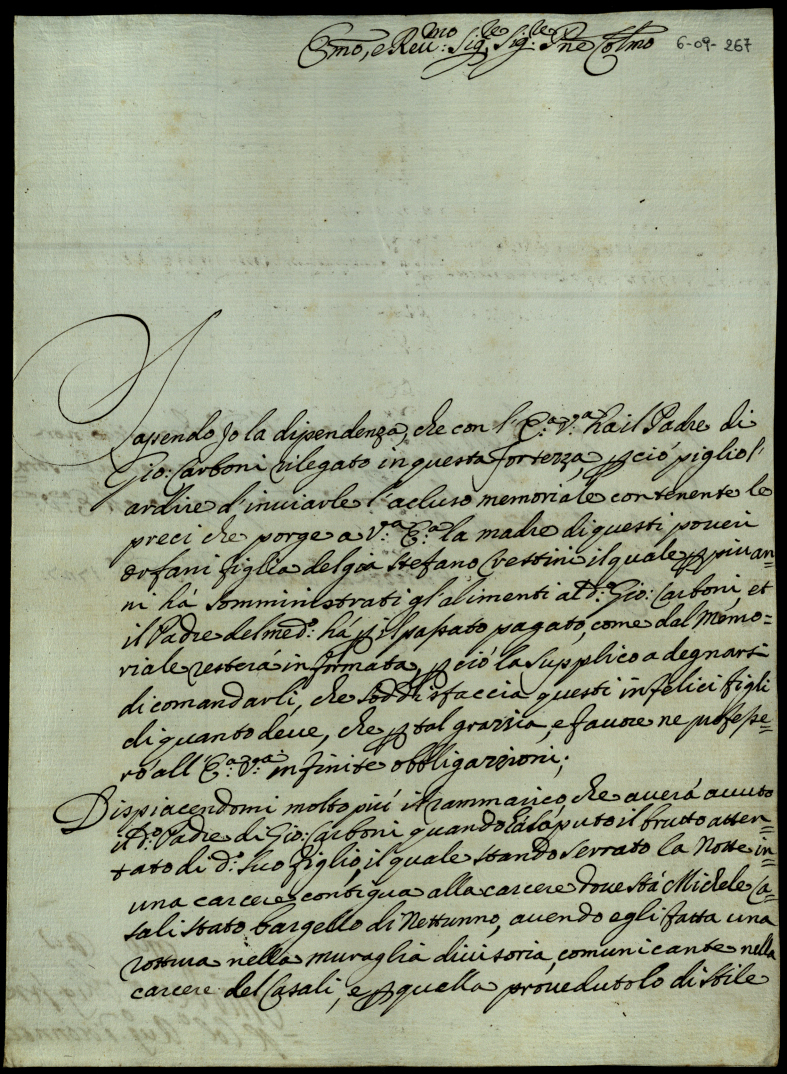 Emo, e Reu:mo Sig:re Sig:re Pne Colmo 6-09-267
Sapendo Jo la dipendenza, che con l'E:a V:a ha il Padre di
Gio: Carboni rilegato in questa fortezza, p ciò piglio l'
ardire d'inuiarle l'acluso memoriale contenente le
preci che porge a V:a E:a la madre di questi poueri
orfani figlia del già Stefano Vestini il quale p più an=
ni há somministrati gl'alimenti al d:o Gio: Carboni, et
il Padre del med:o há p il passato pagato, come dal Memo=
riale resterá informata, p ció la supplico a degnarsi
di comandarli, che soddisfaccia questi infelici figli
di quanto deue, che p tal grazzia, e fauore ne professe=
ró all'E:a V:ra infinite obbligazzioni;
Dispiacendomi molto piú il rammarico, che auerá auuto
il d:o Padre di Gio: Carboni quando há saputo il brutto atten=
tato di d:o suo figlio, il quale stando serrato la Notte in
una carcere contigua alla carcere doue stá Michele Ca=
sali stato bargello di Nettunno, auendo egli fatta una
rottura nella muraglia diuisoria, comunicante nella
carcere del Casali, e p quella prouedutolo di stile